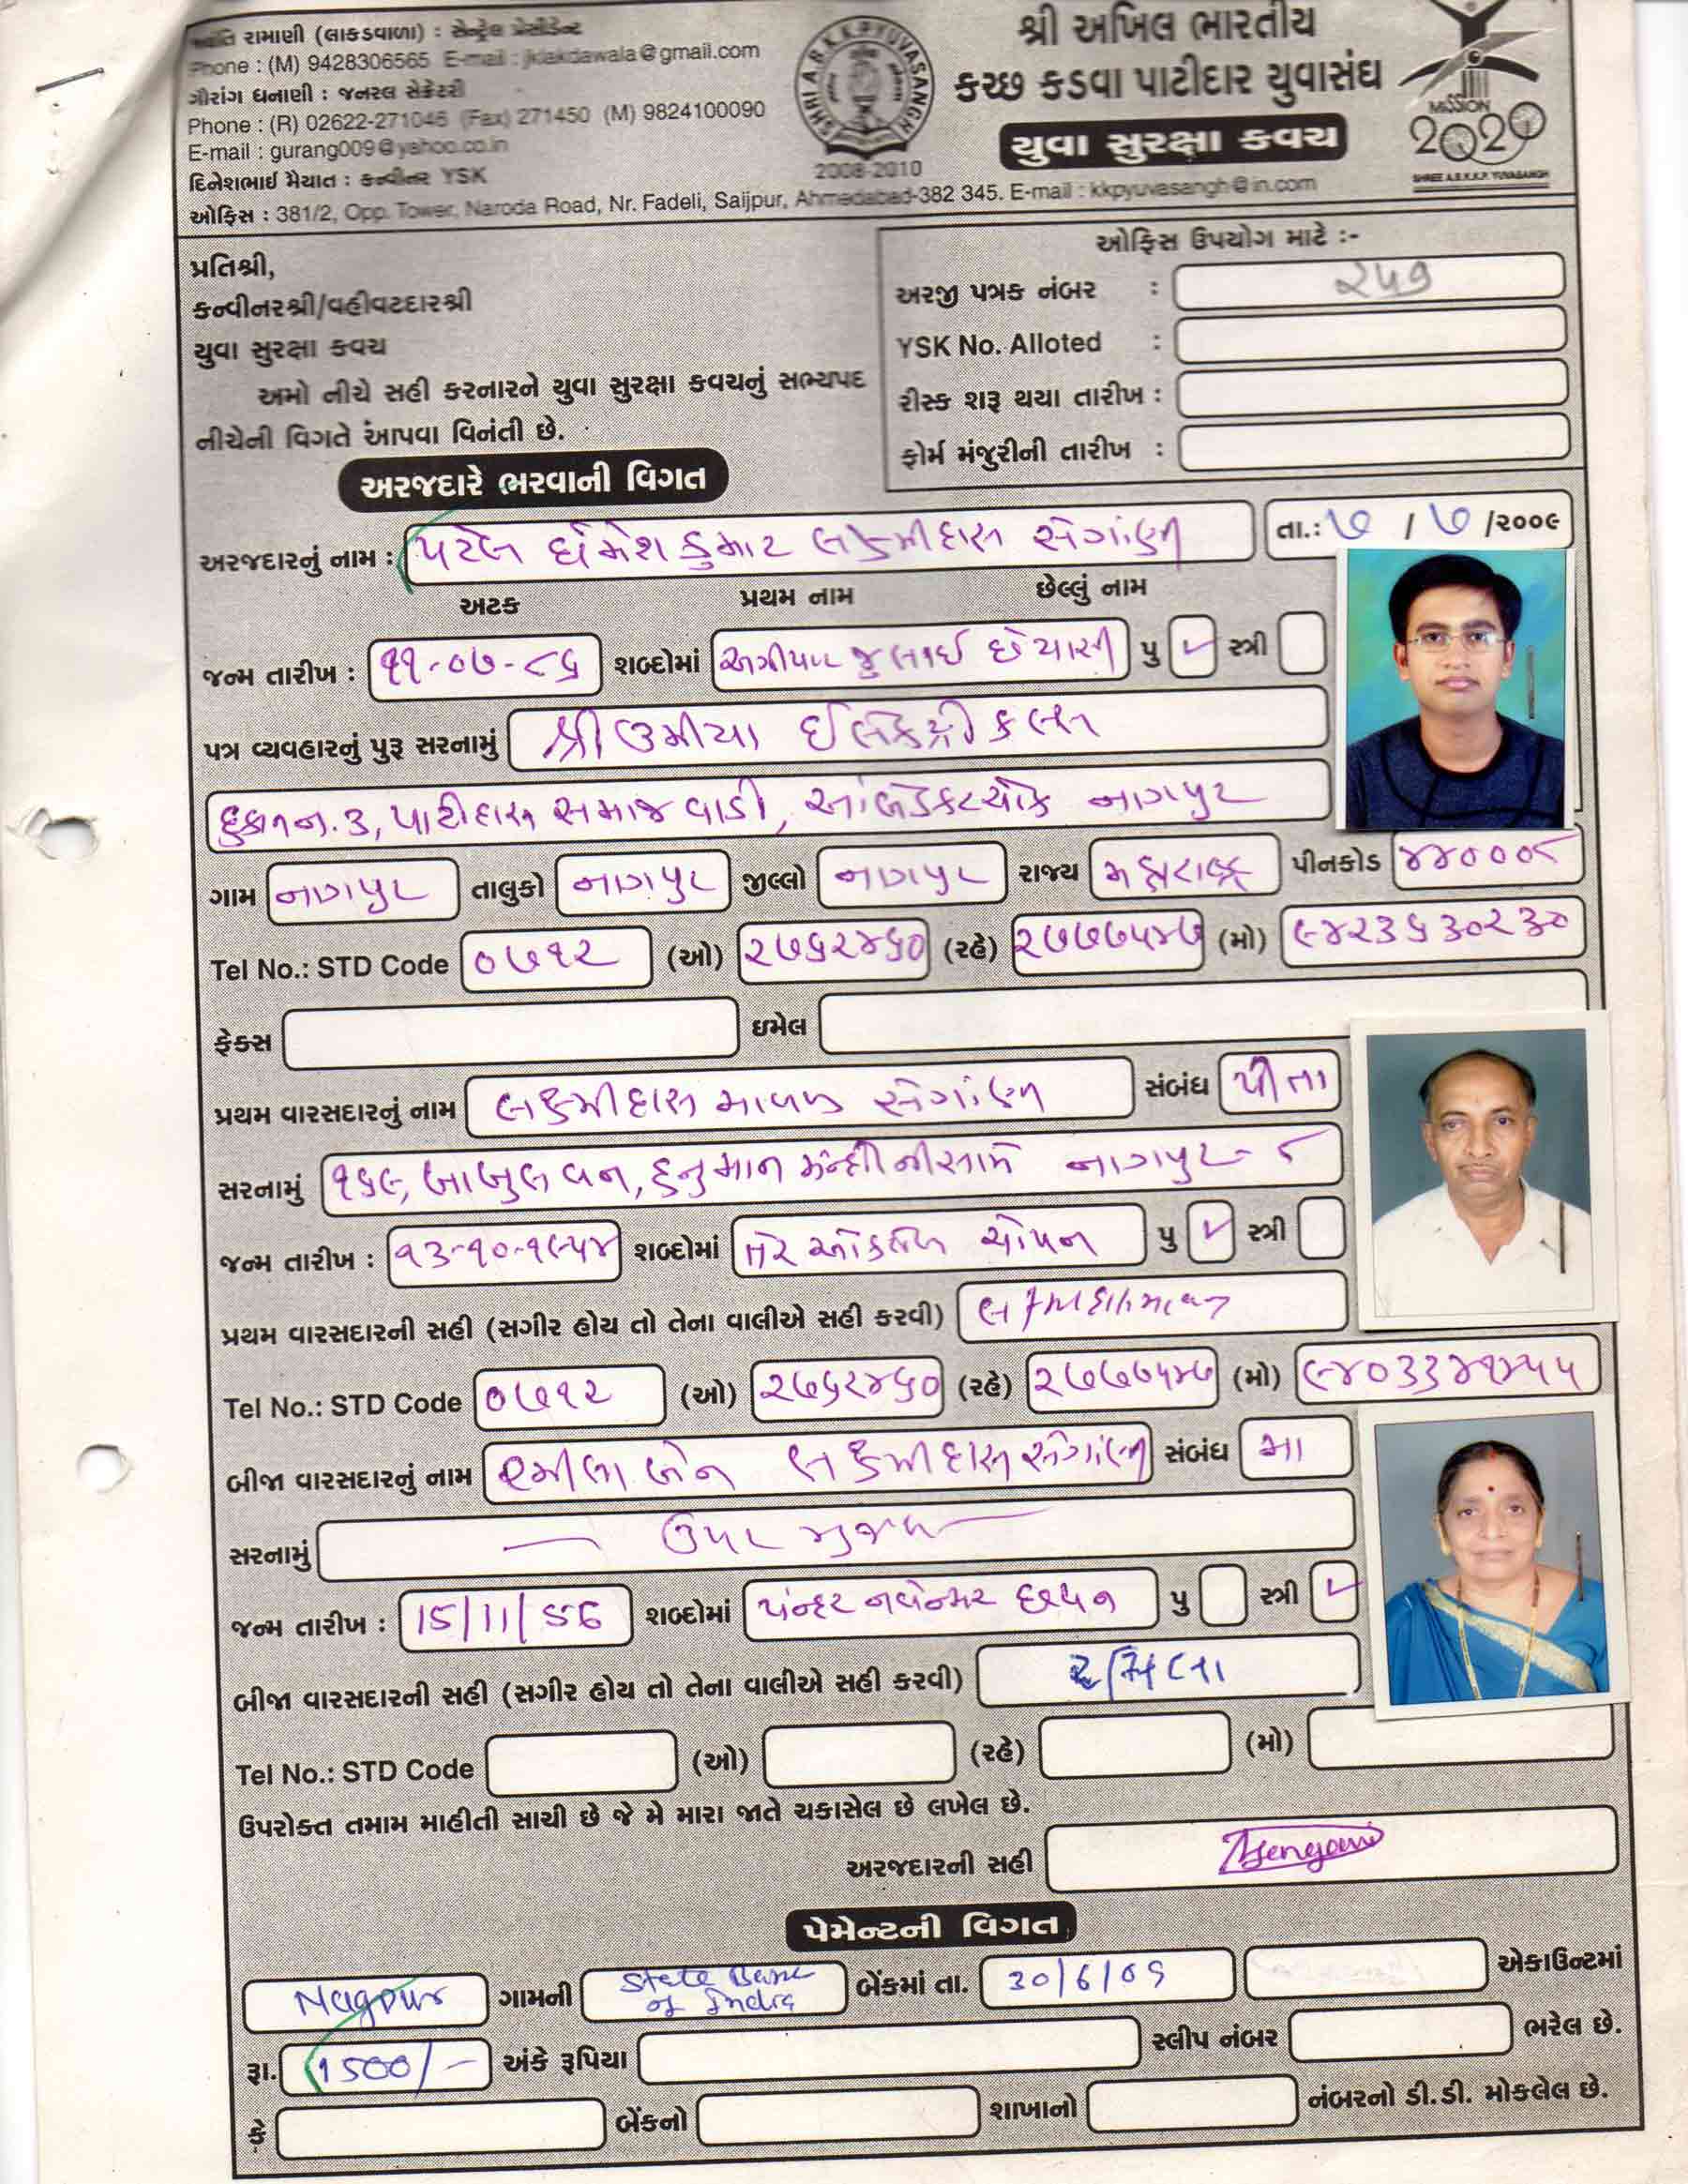 રામાણી (લાકડવાળા) : સેન્ટ્રેલ પ્રેસીડેન્ટ
Phone : (M) 9428306565 E-mail : jklakdawala@gmail.com
ગૌરાંગ ધનાણી : જનરલ સેક્રેટરી
Phone : (R) 02622-271046 (Fax) 271450 (M) 9824100090
E-mail : gurang009@yahoo.co.in
દિનેશભાઈ મૈયાત : કન્વીનર YSK
ઓફિસ : 381/2, Opp. Tower, Naroda Road, Nr. Fadeli, Saijpur, Ahmedabad-382 345. E-mail : kkpyuvasangh@in.com
SHRI A.B.K.K.P. YUVASANGH
2008-2010
શ્રી અખિલ ભારતીય
કચ્છ કડવા પાટીદાર યુવાસંઘ
યુવા સુરક્ષા કવચ
MISSION
2020
SHREE A.B.K.K.P. YUVASANGH
પ્રતિશ્રી,
કન્વીનરશ્રી/વહીવટદારશ્રી
યુવા સુરક્ષા કવચ
અમો નીચે સહી કરનારને યુવા સુરક્ષા કવચનું સભ્યપદ
નીચેની વિગતે આપવા વિનંતી છે.
ઓફિસ ઉપયોગ માટે :-
અરજી પત્રક નંબર : ૨૫૭
YSK No. Alloted :
રીસ્ક શરૂ થયા તારીખ :
ફોર્મ મંજુરીની તારીખ :
અરજદારે ભરવાની વિગત
અરજદારનું નામ : પટેલ ધર્મેશ કુમાર લક્ષ્મીદાસ સેંગાણી તા.: ૭ / ૭ /૨૦૦૯
અટક પ્રથમ નામ છેલ્લું નામ
જન્મ તારીખ : ૧૧-૦૭-૮૬ શબ્દોમાં અગીયાર જુલાઈ છયાસી પુ ✓ સ્ત્રી
પત્ર વ્યવહારનું પુરૂ સરનામું શ્રી ઉમીયા ઈલેક્ટ્રીકલ્સ
દુકાન નં. ૩, પાટીદાર સમાજ વાડી, આંબેડકર ચોક નાગપુર
ગામ નાગપુર તાલુકો નાગપુર જીલ્લો નાગપુર રાજ્ય મહારાષ્ટ્ર પીનકોડ ૪૪૦૦૦૮
Tel No.: STD Code ૦૭૧૨ (ઓ) ૨૭૬૨૪૬૦ (રહે) ૨૭૭૭૫૪૭ (મો) ૯૪૨૩૬૩૦૨૩૦
ફેક્સ ઇમેલ
પ્રથમ વારસદારનું નામ લક્ષ્મીદાસ માવજી સેંગાણી સંબંધ પીતા
સરનામું ૧૬૯, બાબુલ વન, હનુમાન મંન્દીરની સામે નાગપુર - ૮
જન્મ તારીખ : ૧૩-૧૦-૧૯૫૪ શબ્દોમાં તેર ઓક્ટોબર ચોપન પુ ✓ સ્ત્રી
પ્રથમ વારસદારની સહી (સગીર હોય તો તેના વાલીએ સહી કરવી)
Tel No.: STD Code ૦૭૧૨ (ઓ) ૨૭૬૨૪૬૦ (રહે) ૨૭૭૭૫૪૭ (મો) ૯૪૦૩૩૪૧૪૫૫
બીજા વારસદારનું નામ રમીલા બેન લક્ષ્મીદાસ સેંગાણી સંબંધ મા
સરનામું — ઉપર મુજબ —
જન્મ તારીખ : 15/11/56 શબ્દોમાં પંન્દર નવેન્મર છપ્પન પુ સ્ત્રી ✓
બીજા વારસદારની સહી (સગીર હોય તો તેના વાલીએ સહી કરવી)
Tel No.: STD Code (ઓ) (રહે) (મો)
ઉપરોક્ત તમામ માહીતી સાચી છે જે મે મારા જાતે ચકાસેલ છે લખેલ છે.
અરજદારની સહી
પેમેન્ટની વિગત
Nagpur ગામની State Bank of India બેંકમાં તા. 30/6/09 એકાઉન્ટમાં
રૂા. 1500/- અંકે રૂપિયા સ્લીપ નંબર ભરેલ છે.
કે બેંકનો શાખાનો નંબરનો ડી.ડી. મોકલેલ છે.